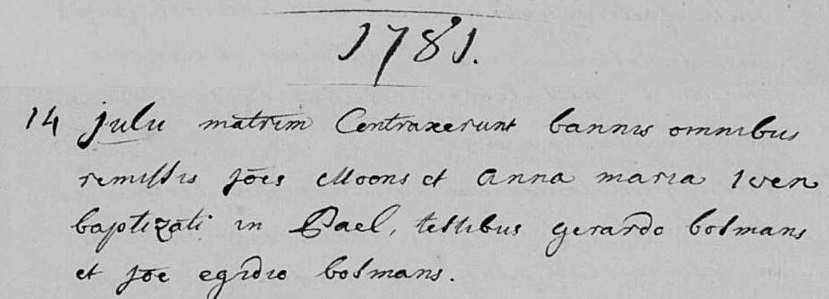 1781.
14 julii matrim Contraxerunt bannis omnibus
remissis Joes Moons et Anna maria Iven
baptizati in Pael, testibus gerardo bosmans
et Joe egidio bosmans.